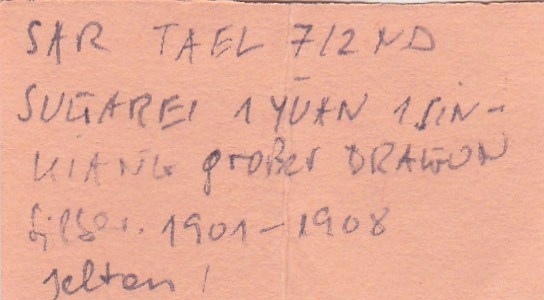 SAR TAEL 7/2 ND
SUGAREI 1 YUAN 1 SIN-
KIANG großer DRAGON
Silber. 1901-1908
selten!